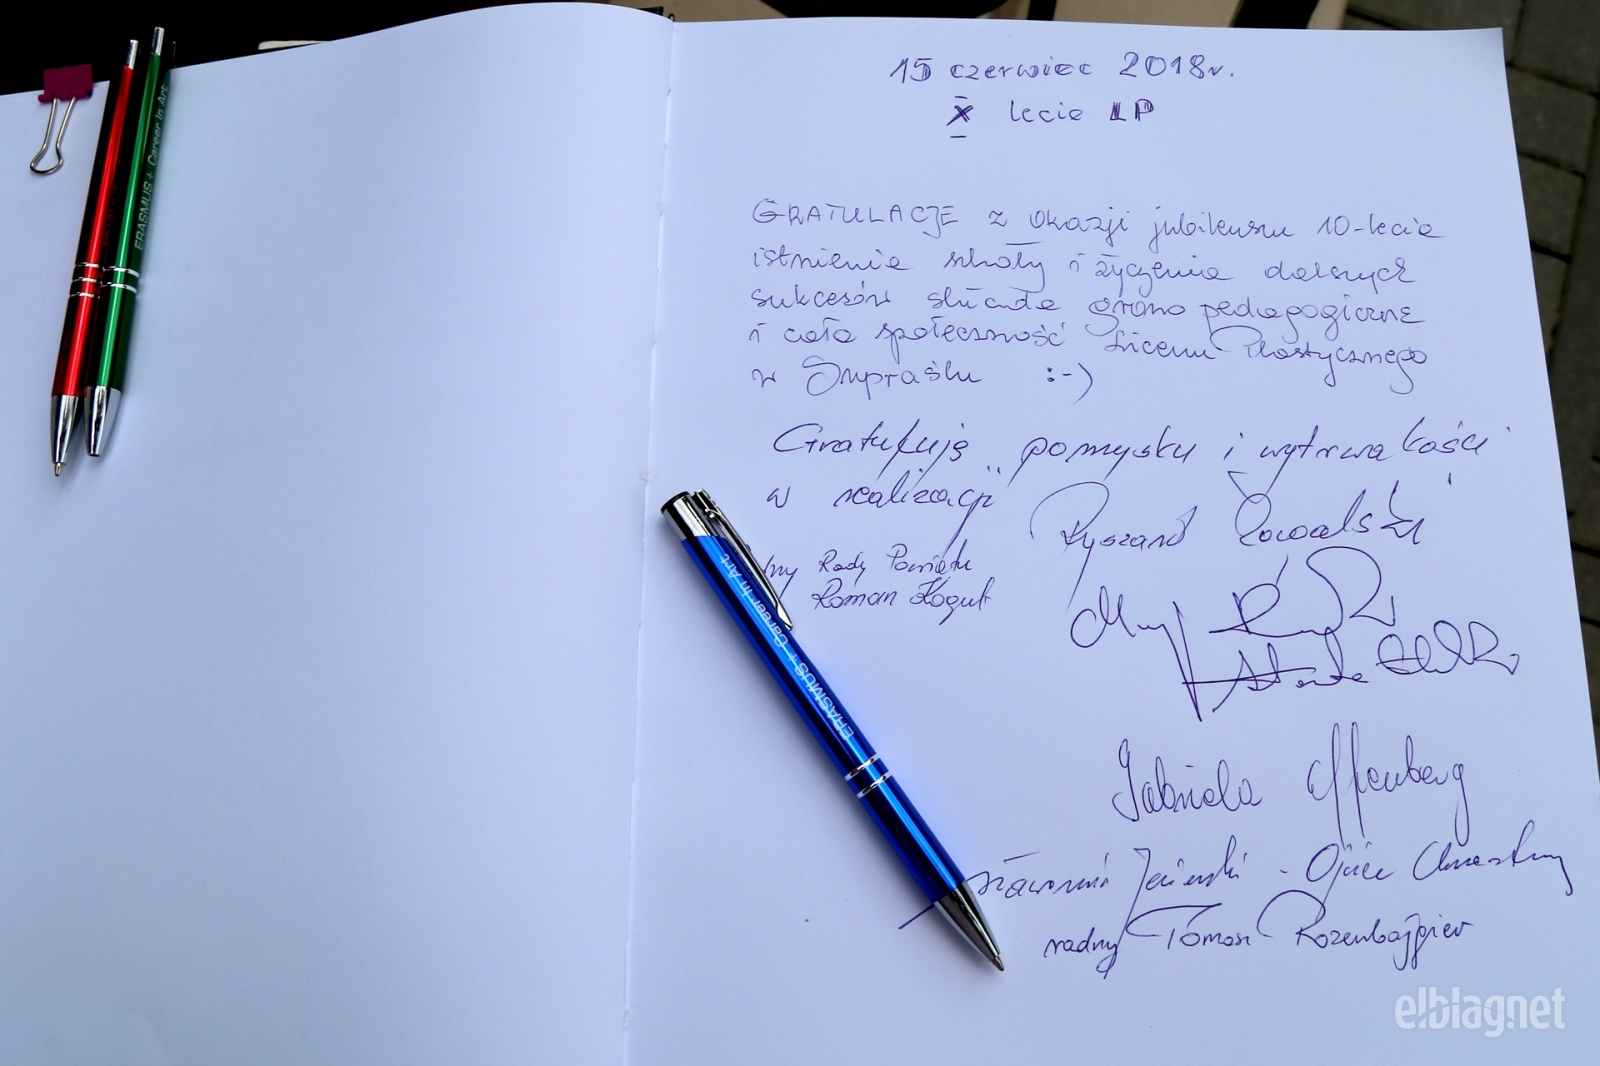 15 czerwiec 2018r.
X lecie LP
GRATULACJE z okazji jubileuszu 10-lecia
istnienia szkoły i życzenia dalszych
sukcesów składa grono pedagogiczne
i cała społeczność Liceum Plastycznego
w Supraślu :-)
Gratuluję pomysłu i wytrwałości
w realizacji
Ryszard Kowalski
ny Rady Powiatu
Roman Kogut
Gabriela Effenberg
Sławomir - Ojciec Chrzestny
radny Tomasz Rozenbajgier
ERASMUS + Career In Art
ERASMUS + Career In Art
elblagnet